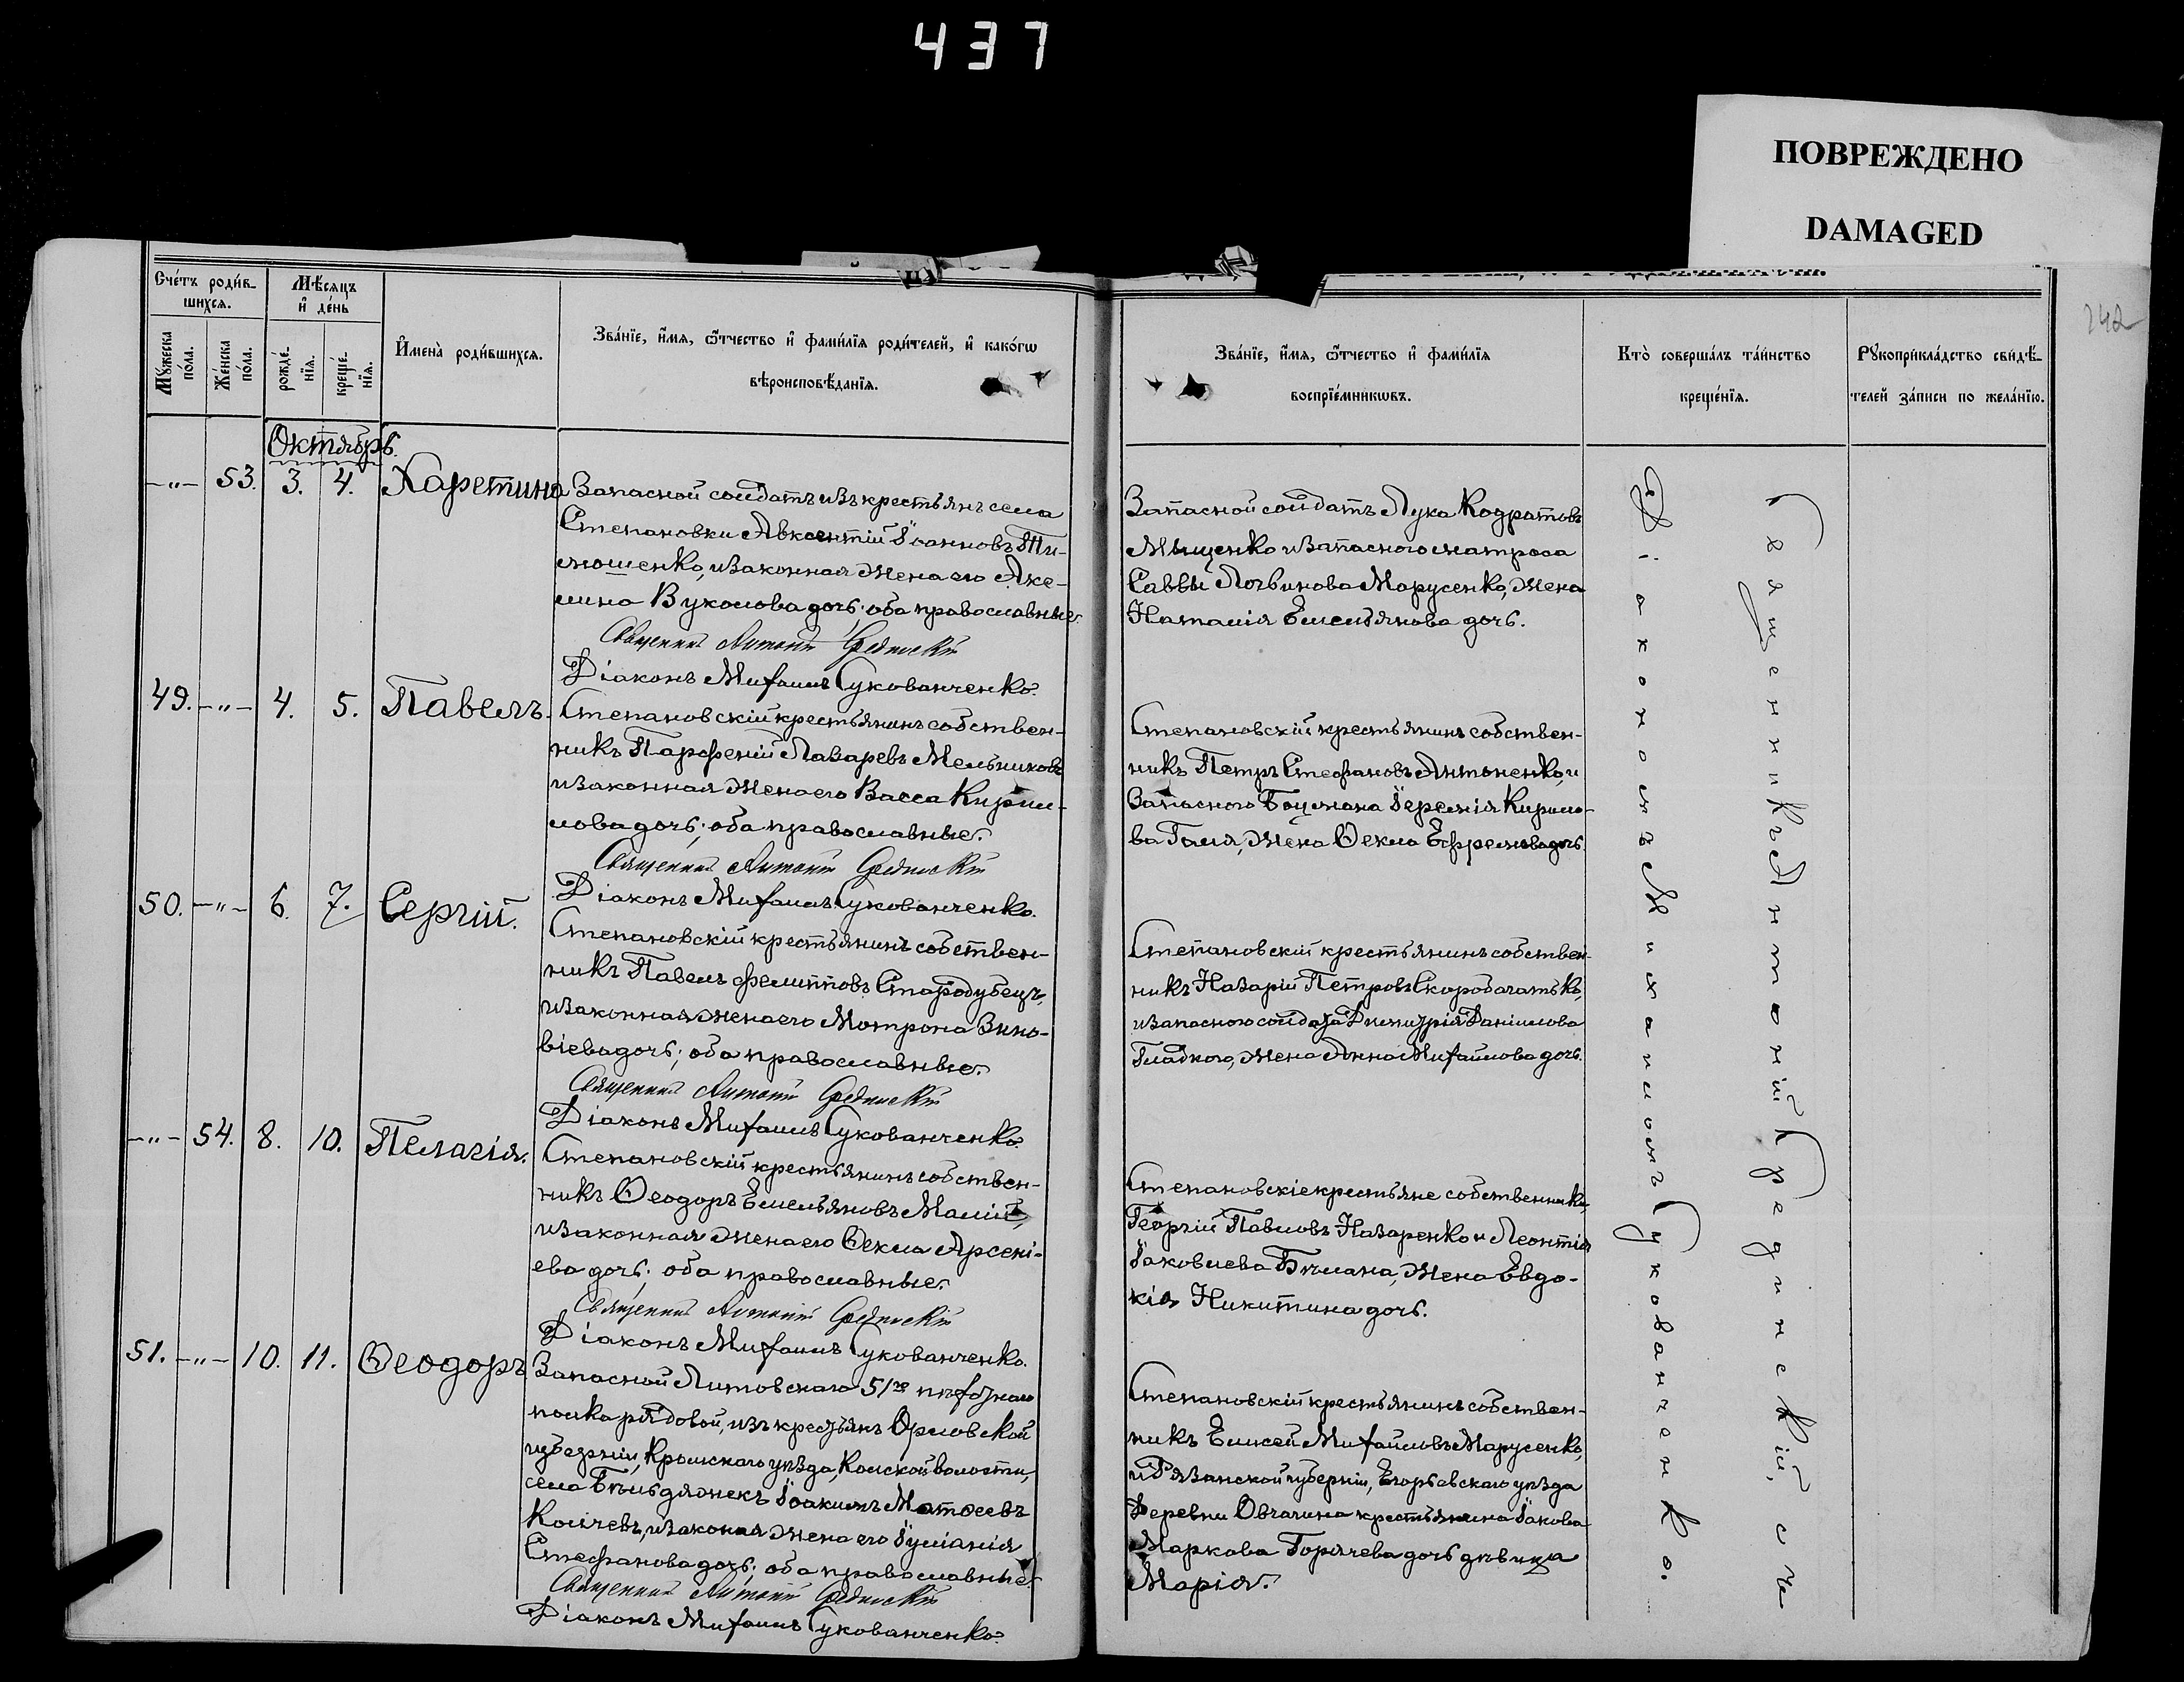 437
ПОВРЕЖДЕНО
DAMAGED
242
Счетъ родив-
шихся.
Мѣсяцъ
и день
Мужеска
пола.
Женска
пола.
рожде-
нїя.
креще-
нїя.
Имена родившихся.
Званїе, имя, отчество и фамилїя родителей, и какогѡ
вѣроисповѣданїя.
Званїе, имя, отчество и фамилїя
воспрїемникѡвъ.
Кто совершалъ таинство
крещенїя.
Рукоприкладство свидѣ-
телей записи по желанїю.
Октябрь.
-"- 53. 3. 4. Харетина
Запасной солдатъ изъ крестьянъ села
Степановки Авксентій Іоанновъ Ти-
мошенко, и законная жена его Аке-
лина Вуколова дочь; оба православные
Священникъ Антоній Срединскій
Діаконъ Михаилъ Сукованченко.
Запасной солдатъ Лука Кодратовъ
Мыщенко и запасного матроса
Саввы Логвинова Марусенко, жена
Наталія Емельянова дочь.
49. -"- 4. 5. Павелъ.
Степановскій крестьянинъ собствен-
никъ Парфеній Лазаревъ Мельниковъ
и законная жена его Васса Кирил-
лова дочь; оба православные.
Священникъ Антоній Срединскій
Діаконъ Михаилъ Сукованченко.
Степановскій крестьянинъ собствен-
никъ Петръ Стефановъ Антоненко, и
Запасного Боцмана Іеремія Кирило-
ва Галя, жена Ѳекла Ефремова дочь.
50. -"- 6. 7. Сергій.
Степановскій крестьянинъ собствен-
никъ Павелъ Филипповъ Стародубецъ,
и законная жена его Мотрона Зино-
віева дочь; оба православные.
Священникъ Антоній Срединскій
Діаконъ Михаилъ Сукованченко.
Степановскій крестьянинъ собствен-
никъ Назарій Петровъ Скоробагатько,
и запасного солдата Димитрія Даніилова
Гладкого, жена Анна Михайлова дочь.
-"- 54. 8. 10. Пелагія.
Степановскій крестьянинъ собствен-
никъ Ѳеодоръ Емельяновъ Малій,
и законная жена его Ѳекла Арсені-
ева дочь; оба православные.
Священникъ Антоній Срединскій
Діаконъ Михаилъ Сукованченко.
Степановскіе крестьяне собственники
Георгій Павловъ Назаренко и Леонтія
Іаковлева Бѣлана, жена Евдо-
кія Никитина дочь.
51. -"- 10. 11. Ѳеодоръ
Запасной Литовскаго 51го пѣхотнаго
полка рядовой, изъ крестьянъ Орловской
губерніи, Кромскаго уѣзда, Комской волости,
села Іоакимъ Матѳеевъ
и законая жена его Іуліанія
Стефанова дочь; оба православные.
Священникъ Антоній Срединскій
Діаконъ Михаилъ Сукованченко.
Степановскій крестьянинъ собствен-
никъ Елисей Михайловъ Марусенко,
и Рязанской губерніи, Егорьевскаго уѣзда
Деревни Овчагина крестьянина Іакова
Маркова Горячева дочь дѣвица
Марія.
Священникъ Антоній Срединскій, съ
Діакономъ Михаиломъ Сукованченко.